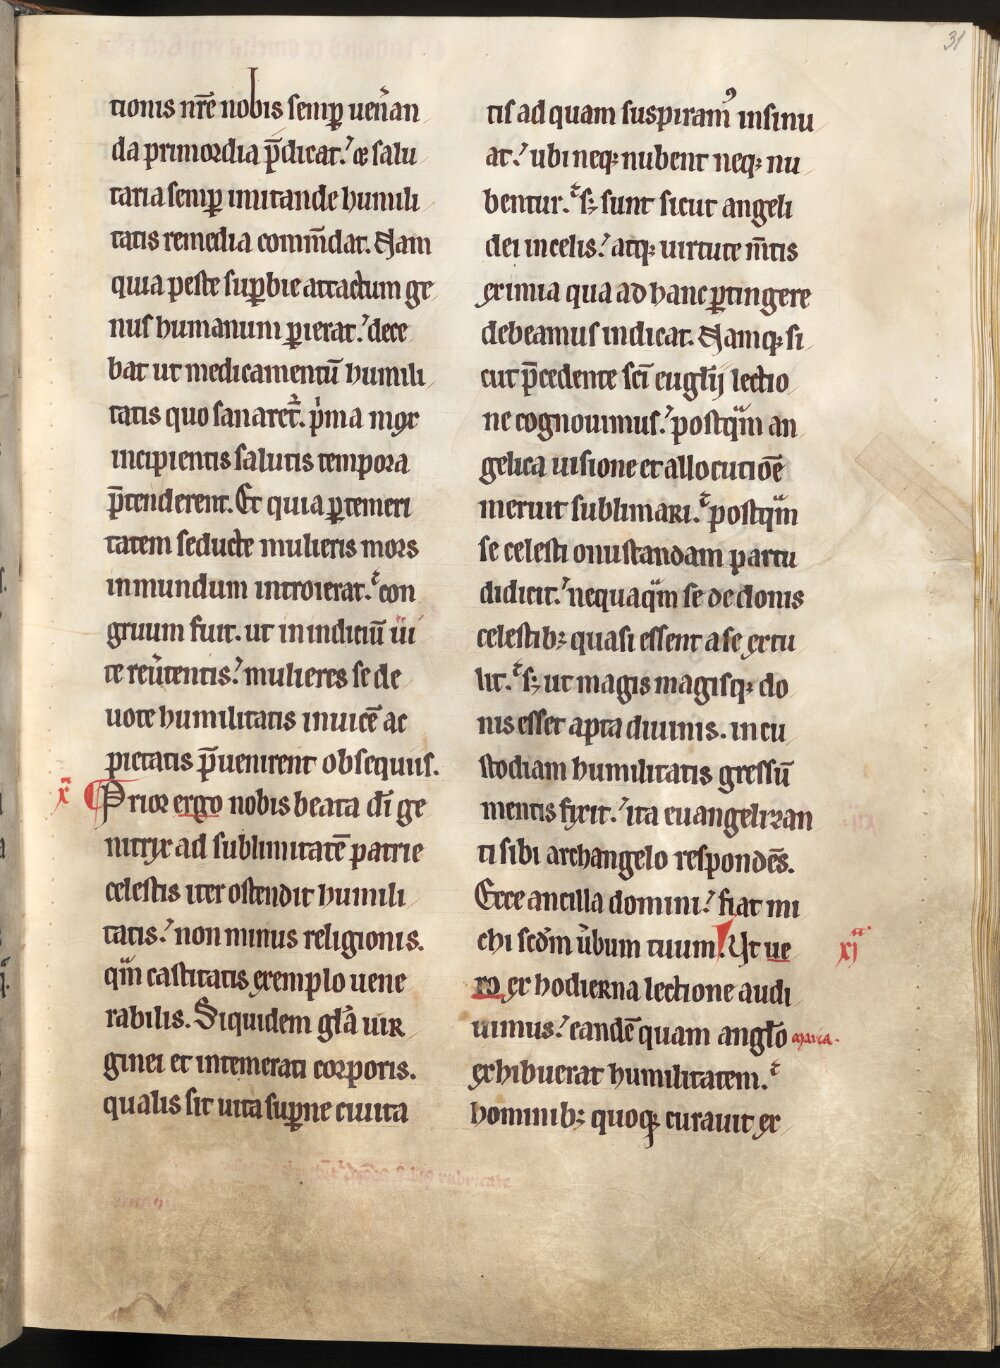 31
tionis nr̄e nobis semꝑ uen̄an
da primordia p̄dicat. ⁊ salu
taria semꝑ imitande humili
tatis remedia com̄dat. Nam
quia peste suꝑbie attactum ge
nus humanum ꝑierat. dece
bat ut medicamentū humili
tatis quo sanaret᷑. p͛ma mox
incipientis salutis tempora
p̄tenderent. Et quia ꝑ temeri
tatem seducte mulieris mors
in mundum introierat. con
gruum fuit. ut in indiciū ui
te reu̓tentis. mulieres se de
uote humilitatis inuicē ac
pietatis p̄uenirent obsequiis.
x̄
Prior ergo nobis beata dī ge
nitrix ad sublimitatē patrie
celestis iter ostendit humili
tatis. non minus religionis.
qͣm castitatis exemplo uene
rabilis. Siquidem gła uir
ginei et intemerati corporis.
qualis sit uita suꝑne ciuita
tis ad quam suspiramꝰ insinu
at. ubi neqꝫ nubent neqꝫ nu
bentur. sꝫ sunt sicut angeli
dei in celis. atqꝫ uirtute m̄tis
eximia qua ad hanc ꝑtingere
debeamus indicat. Namqꝫ si
cut p̄cedente sc̄i eug̃lij lectio
ne cognouimus. postqͣm an
gelica uisione et allocutiōe
meruit sublimari. postqͣm
se celesti onustandam partu
didicit. nequaqͣm se de donis
celestibꝫ quasi essent a se extu
lit. sꝫ ut magis magisqꝫ do
nis esset apta diuinis. in cu
stodiam humilitatis gressū
mentis fixit. ita euangelizan
ti sibi archangelo respondēs.
Ecce ancilla domini. fiat mi
chi sc̄dm u̓bum tuum. Ut ue
xj
ro ex hodierna lectione audi
uimus. eandē quam anglo
maria.
exhibuerat humilitatem.
hominibꝫ quoqꝫ curauit ex
rubricate